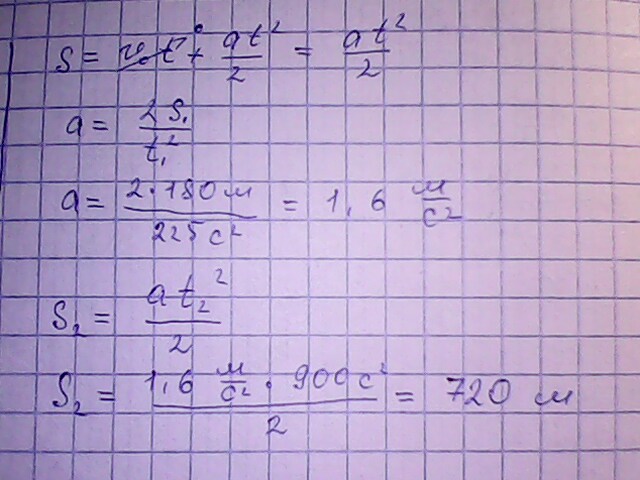 S = v₀t⁰ + at²/2 = at²/2
a = 2S₁/t₁²
a = 2·180м/225с² = 1,6 м/с²
S₂ = at₂²/2
S₂ = 1,6 м/с² · 900с²/2 = 720 м